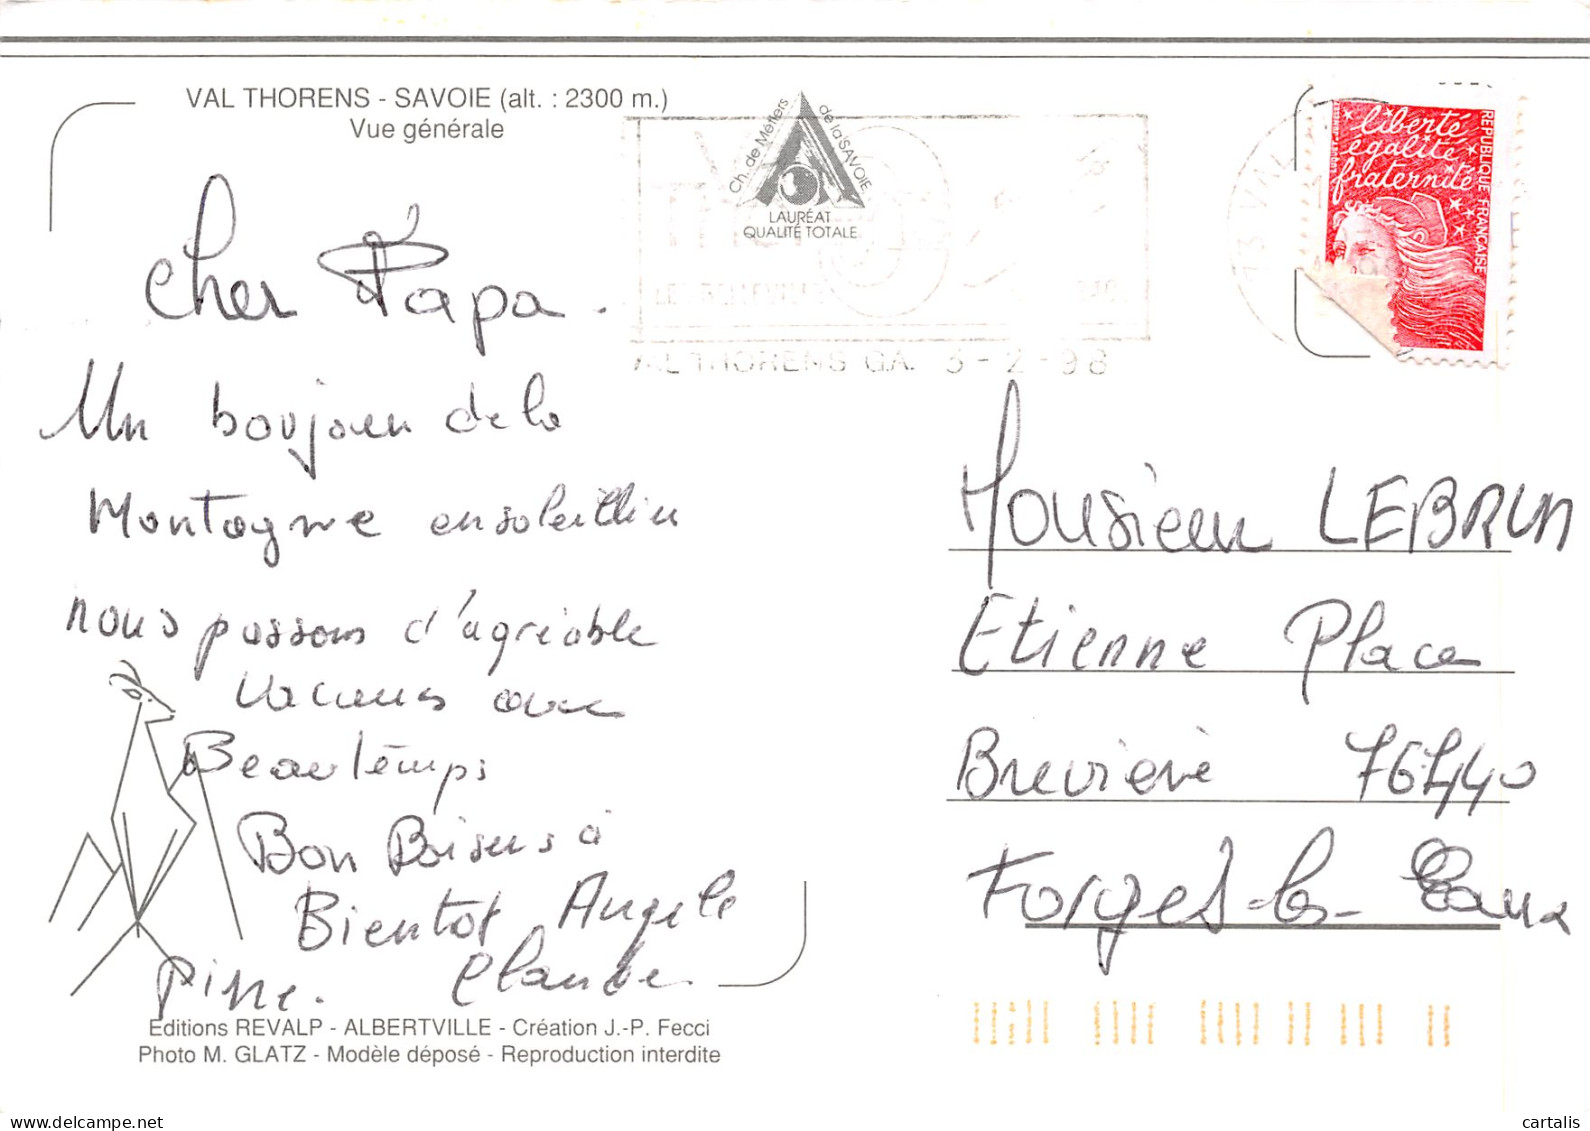 VAL THORENS - SAVOIE (alt. : 2300 m.)
Vue générale
Ch. de Métiers de la SAVOIE
LAURÉAT
QUALITÉ TOTALE
VAL THORENS G.A. 5-2-98
73 VAL
liberté
égalité
fraternité
REPUBLIQUE FRANÇAISE
Cher Papa.
Un boujour de la
Montagne ensoleillée
nous passons d'agréable
vacances avec
Beau temps
Bon Boisers à
Bientot Angele
Pirre. Claude
Monsieur LEBRUN
Etienne Place
Brevière 76440
Forges-les-Eaux
Editions REVALP - ALBERTVILLE - Création J.-P. Fecci
Photo M. GLATZ - Modèle déposé - Reproduction interdite
cartalis